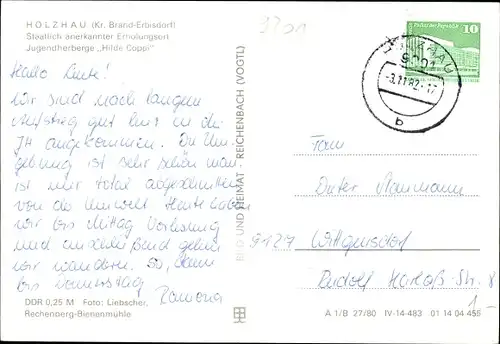 HOLZHAU (Kr. Brand-Erbisdorf)
Staatlich anerkannter Erholungsort
Jugendherberge „Hilde Coppi"
Hallo Leute!
Wir sind nach langem
Aufstieg gut hier in die
JH angekommen. Die Um-
gebung ist sehr schön man
ist nur total abgeschnitten
von der Umwelt. Heute haben
wir bis Mittag Vorlesung
und anschließend gehen
wir wandern. So, dann
bis Donnerstag
Ramona
DDR 0,25 M Foto: Liebscher,
Rechenberg-Bienenmühle
BILD UND HEIMAT REICHENBACH (VOGTL)
10
HOLZHAU
9201
-3.11.82-17
b
Fam
Dieter
9127 Wittgensdorf
Rudolf Harlaß-Str. 8
1.-
A 1/B 27/80 IV-14-483 01 14 04 455